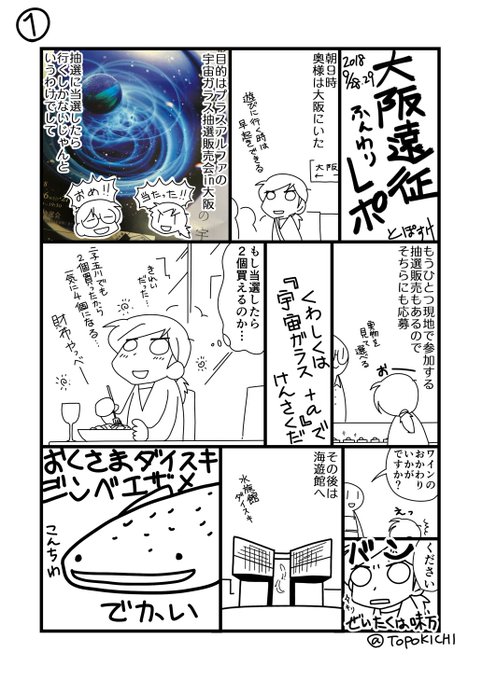 ①
大阪遠征
ふんわり
レポ
2018
9/28.29
とぽすけ
朝9時
奥様は大阪にいた
大阪
←
遊びに行く時は
早起きできる
目的はプラスアルファの
宇宙ガラス抽選販売会in大阪
抽選に当選したら
行くしかないじゃんと
いうわけでして
当たった!!
おめ!!
もうひとつ現地で参加する
抽選販売もあるので
そちらにも応募
実物を
見て選べる
おー
くわしくは
『宇宙ガラス +α』で
けんさくだ
もし当選したら
2個買えるのか…
きれい
だった…
二子玉川でも
2個買ったから
一気に4個になる…
財布やっべ
ワインの
おかわり
いかが
ですか?
えっ
ください
バン
ぜいたくは味方
その後は
海遊館へ
水族館
ダイスキ
おくさまダイスキ
ジンベエザメ
こんちわ
でかい
@TOPOKICHI